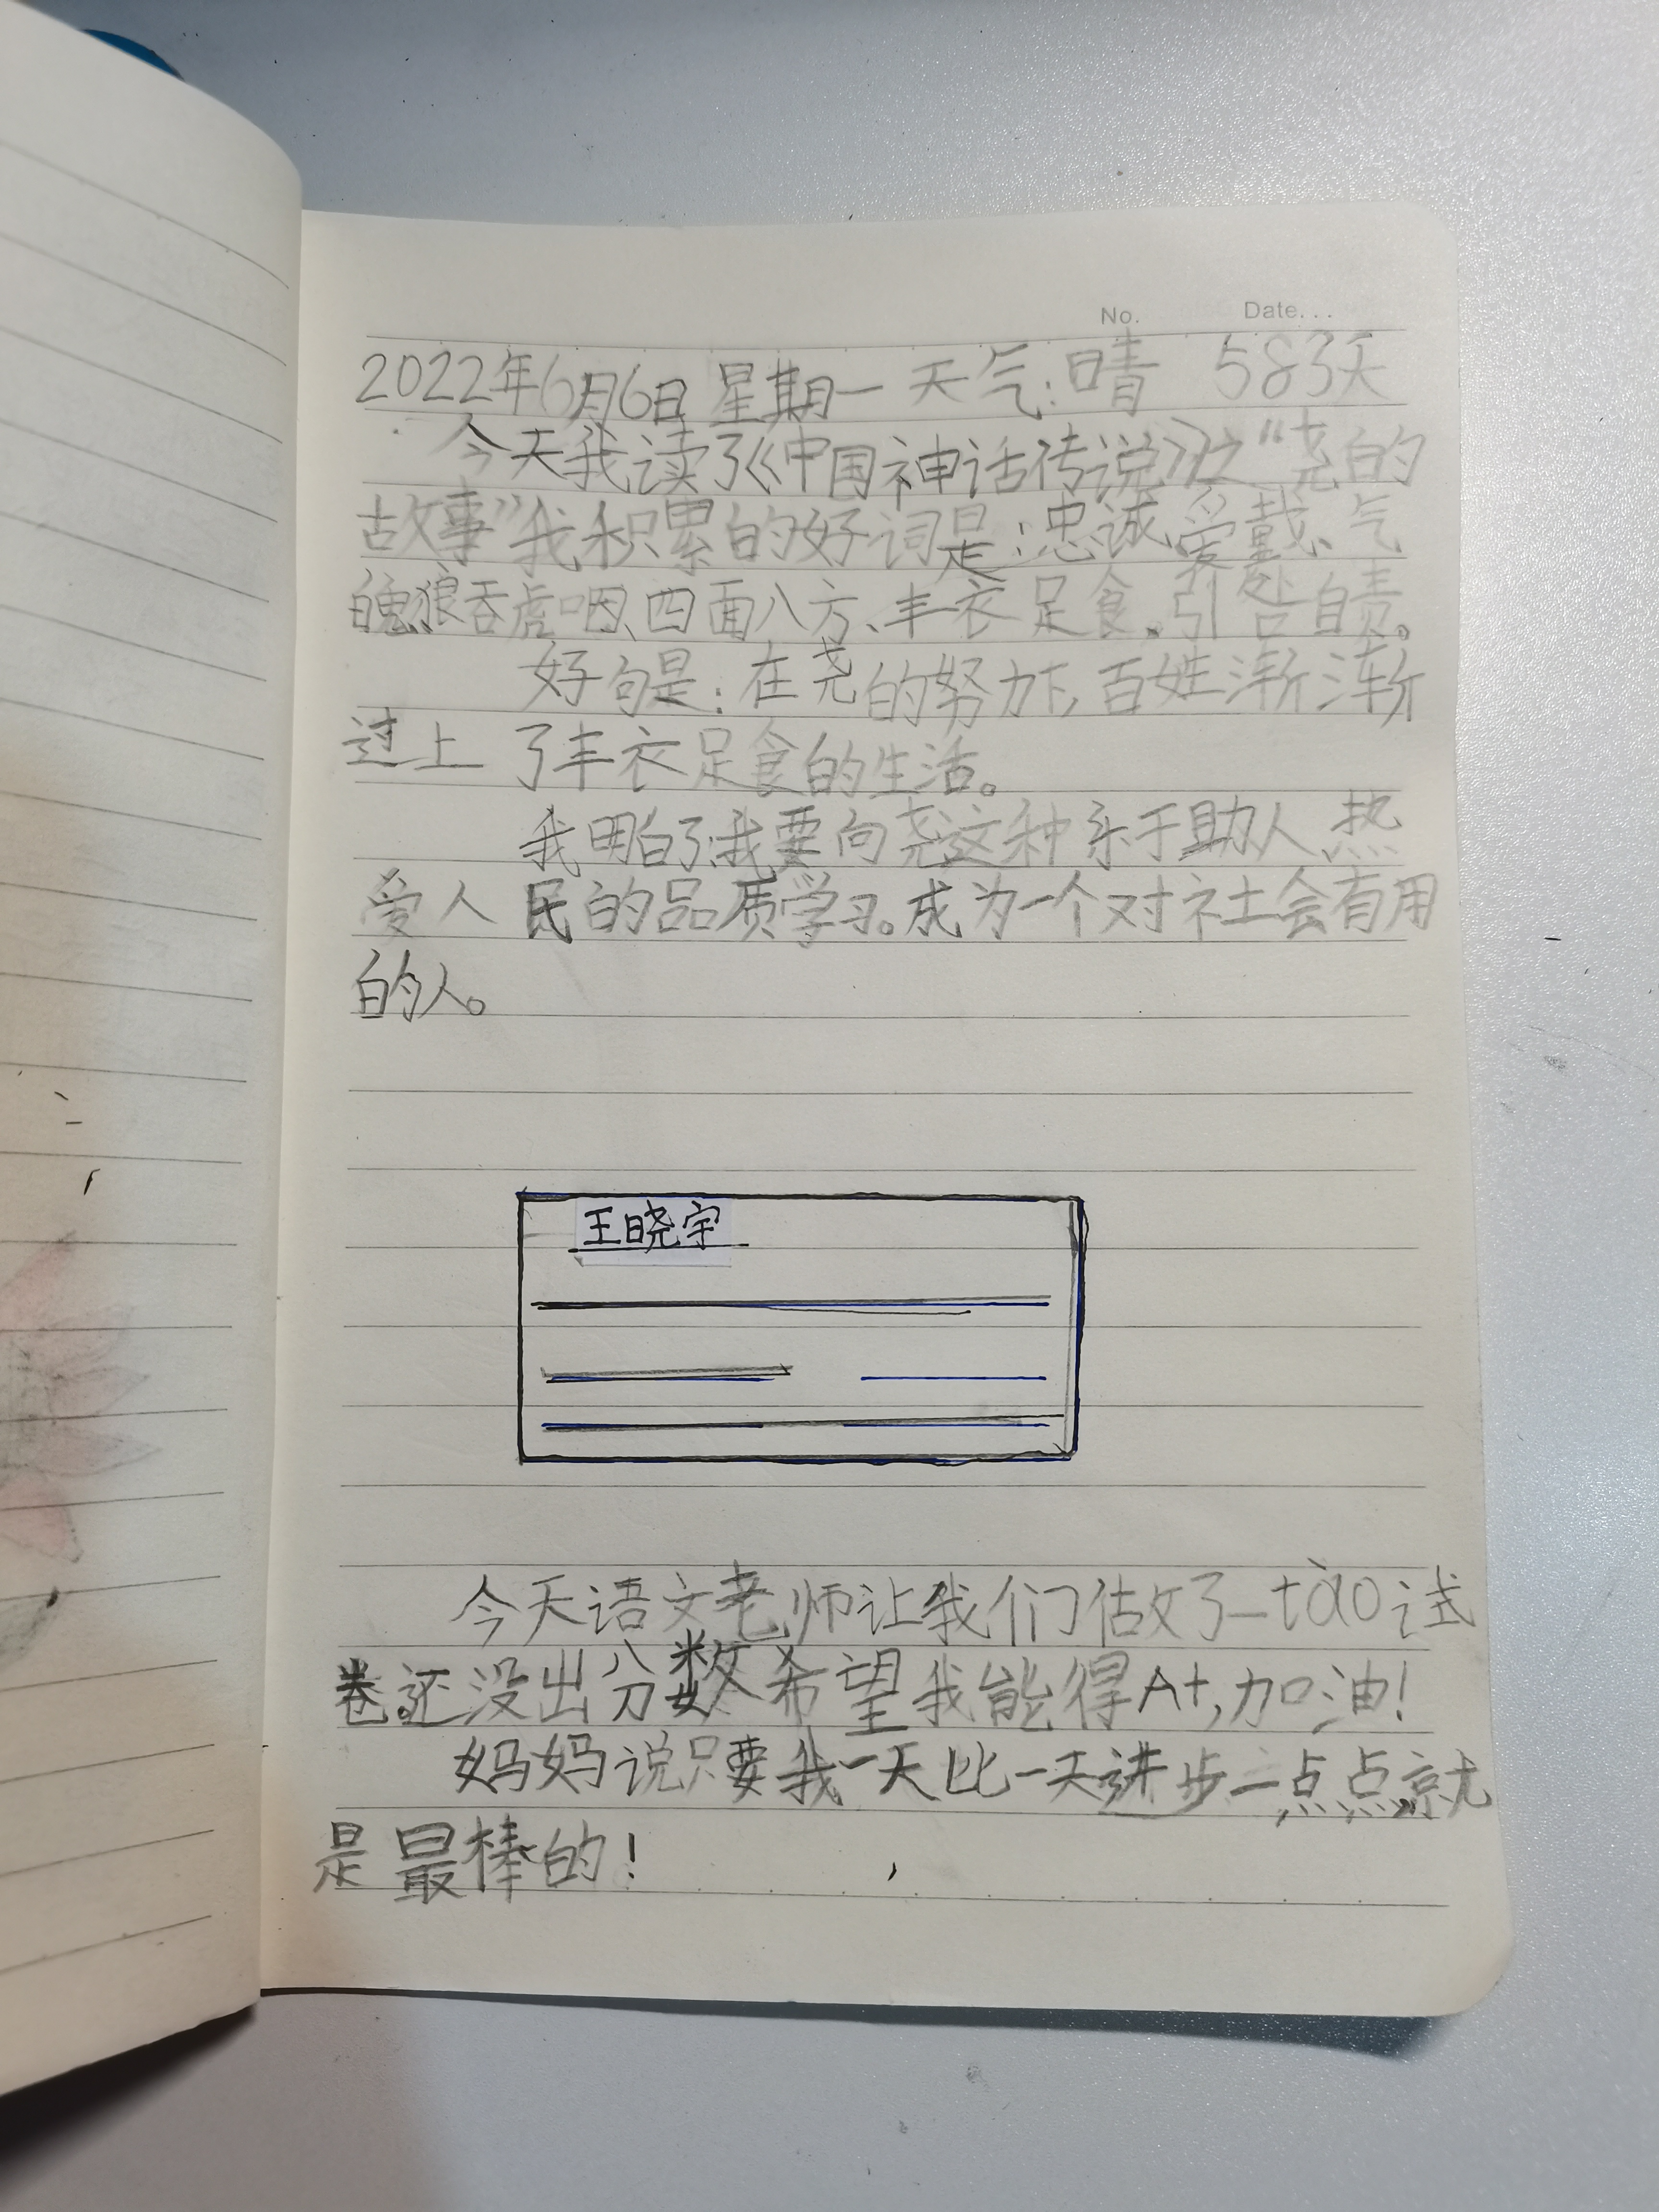 No. Date...
2022年6月6日 星期一 天气:晴 583天
今天我读了《中国神话传说》之“尧的
故事”我积累的好词是:忠诚、爱戴、气
魄、狼吞虎咽、四面八方、丰衣足食。引咎自责。
好句是:在尧的努力下,百姓渐渐
过上了丰衣足食的生活。
我明白了:我要向尧这种乐于助人、热
爱人民的品质学习。成为一个对社会有用
的人。
王晓宇
今天语文老师让我们估攵了一tào试
卷。还没出分数希望我能得A+,加油!
妈妈说只要我一天比一天进步一点点,就
是最棒的!